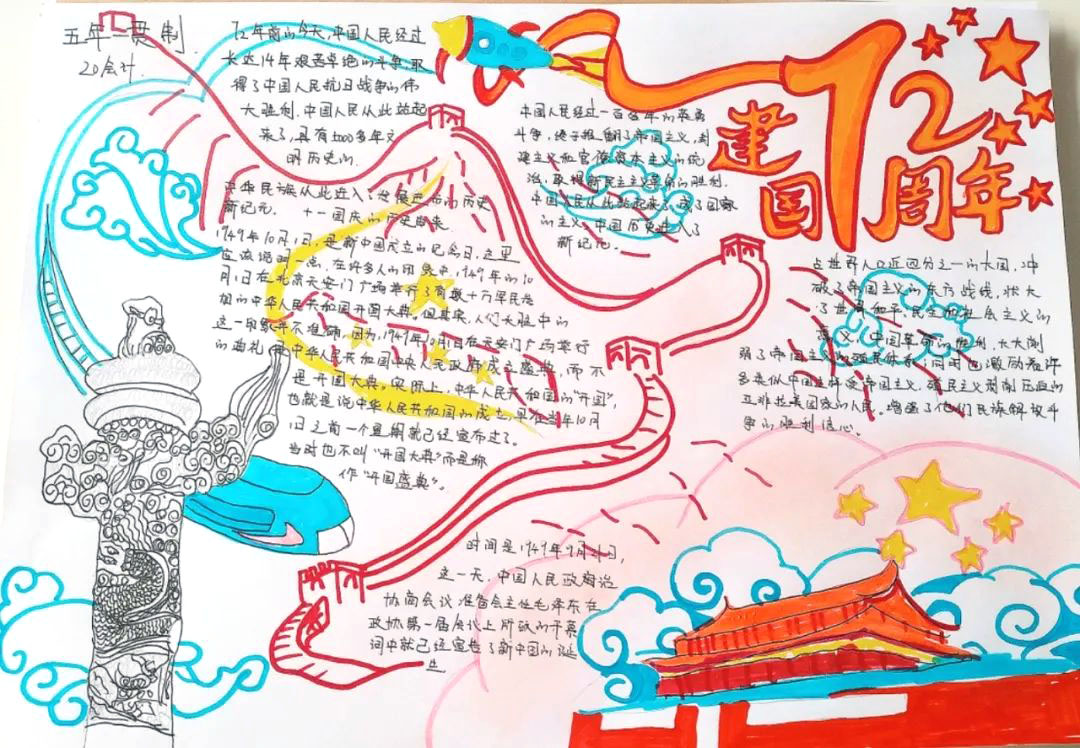 五年一贯制
20会计
72年前的今天,中国人民经过
长达14年艰苦卓绝的斗争,取
得了中国人民抗日战争的伟
大胜利,中国人民从此站起
来了,具有5000多年文
明历史的
中华民族从此进入了发展进步的历史
新纪元. 十一国庆的历史由来.
1949年10月1日,是新中国成立的纪念日.这里
应该说明一点,在许多人的印象中,1949年的10
月1日在北京天安门广场举行了有数十万军民参
加的中华人民共和国开国大典.但其实,人们头脑中的
这一印象并不准确.因为,1949年10月1日在天安门广场举行
的典礼是中华人民共和国中央人民政府成立盛典,而不
是开国大典,实际上,中华人民共和国的"开国",
也就是说中华人民共和国的成立,早在当年10月
1日之前一个星期就已经宣布过了.
当时也不叫"开国大典"而是称
作"开国盛典"。
时间是1949年9月21日,
这一天,中国人民政治
协商会议准备会主任毛泽东在
政协第一届会议上所做的开幕
词中就已经宣告了新中国的诞
生
建国72周年
中国人民经过一百多年的英勇
斗争,终于推翻了帝国主义,封
建主义和官僚资本主义的统
治,取得新民主主义革命的胜利.
中国人民从此站起来了,成了国家
的主义,中国历史进入了
新纪元。
占世界人口近四分之一的大国,冲
破了帝国主义的东方战线,壮大
了世界和平,民主和社会主义的
意义,中国革命的胜利,大大削
弱了帝国主义的殖民体系;同时也激励着许
多类似中国这样受帝国主义,殖民主义剥削压迫的
亚非拉美国家的人民,增强了他们民族解放斗
争的胜利信心。